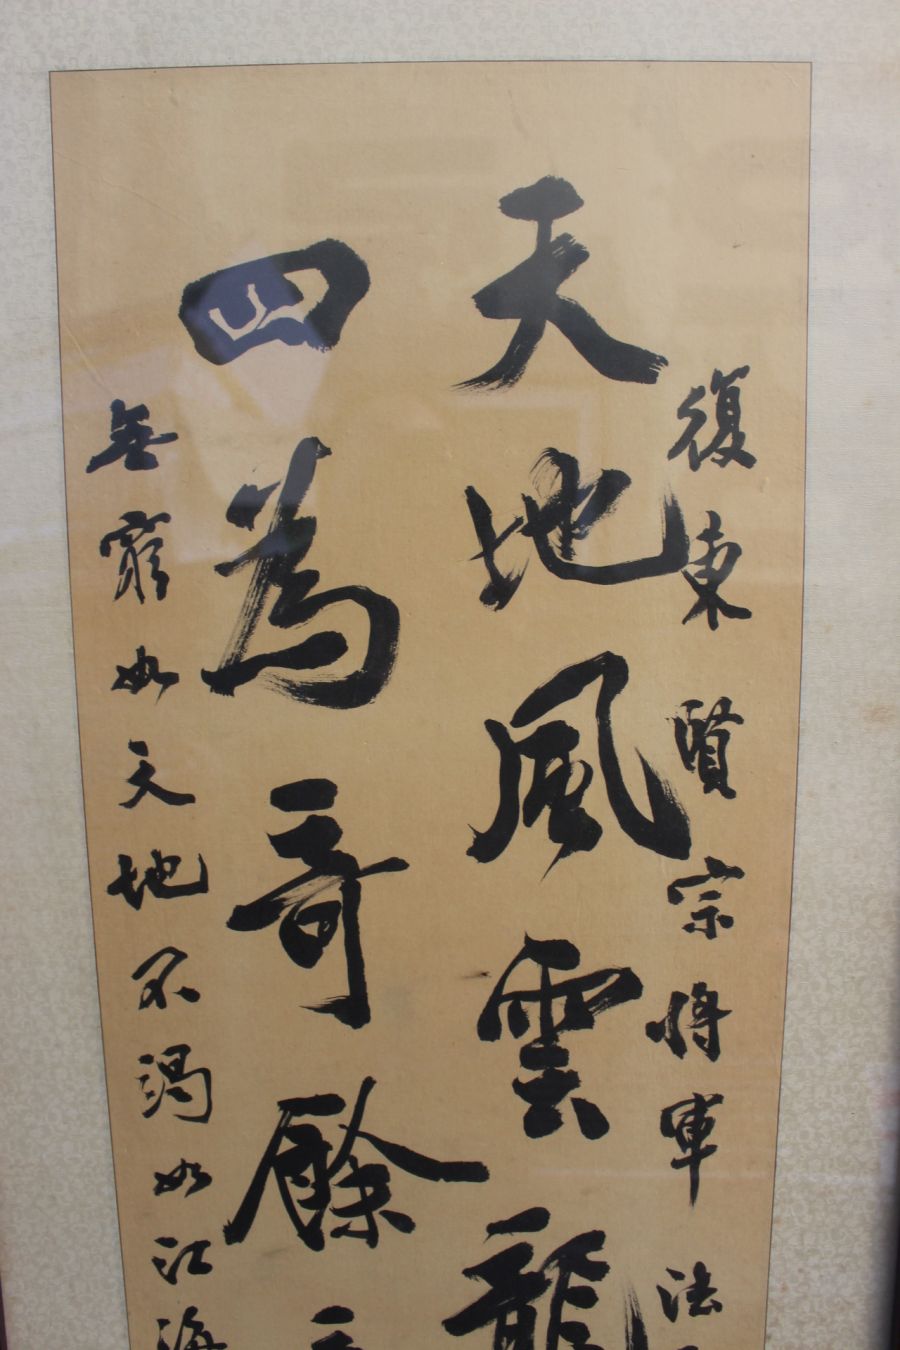 復東賢宗将軍法
天地風雲龍
四為奇餘
無窮如天地不竭如江海